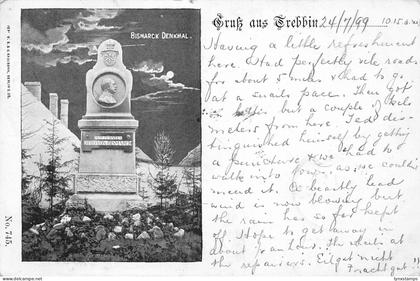 Gruß aus Trebbin 24/7/99 10.15 a.m.
BISMARCK DENKMAL.
Having a little refreshment
here. Had perfectly vile roads
for about 5 miles & had to go
at a snails pace. Then got
better but a couple of kilo-
metres from here Ted dis-
tinguished himself by getting
a puncture & we had to
walk into town as we couldn't
mend it. A beastly head
wind is now blowing but
the rain has so far kept
off. Hope to get away in
about ½ an hour. Ths. cuts at
the repairers. Eilgut nicht
Frachtgut!!
OTTO VON BISMARCK
No. 745.